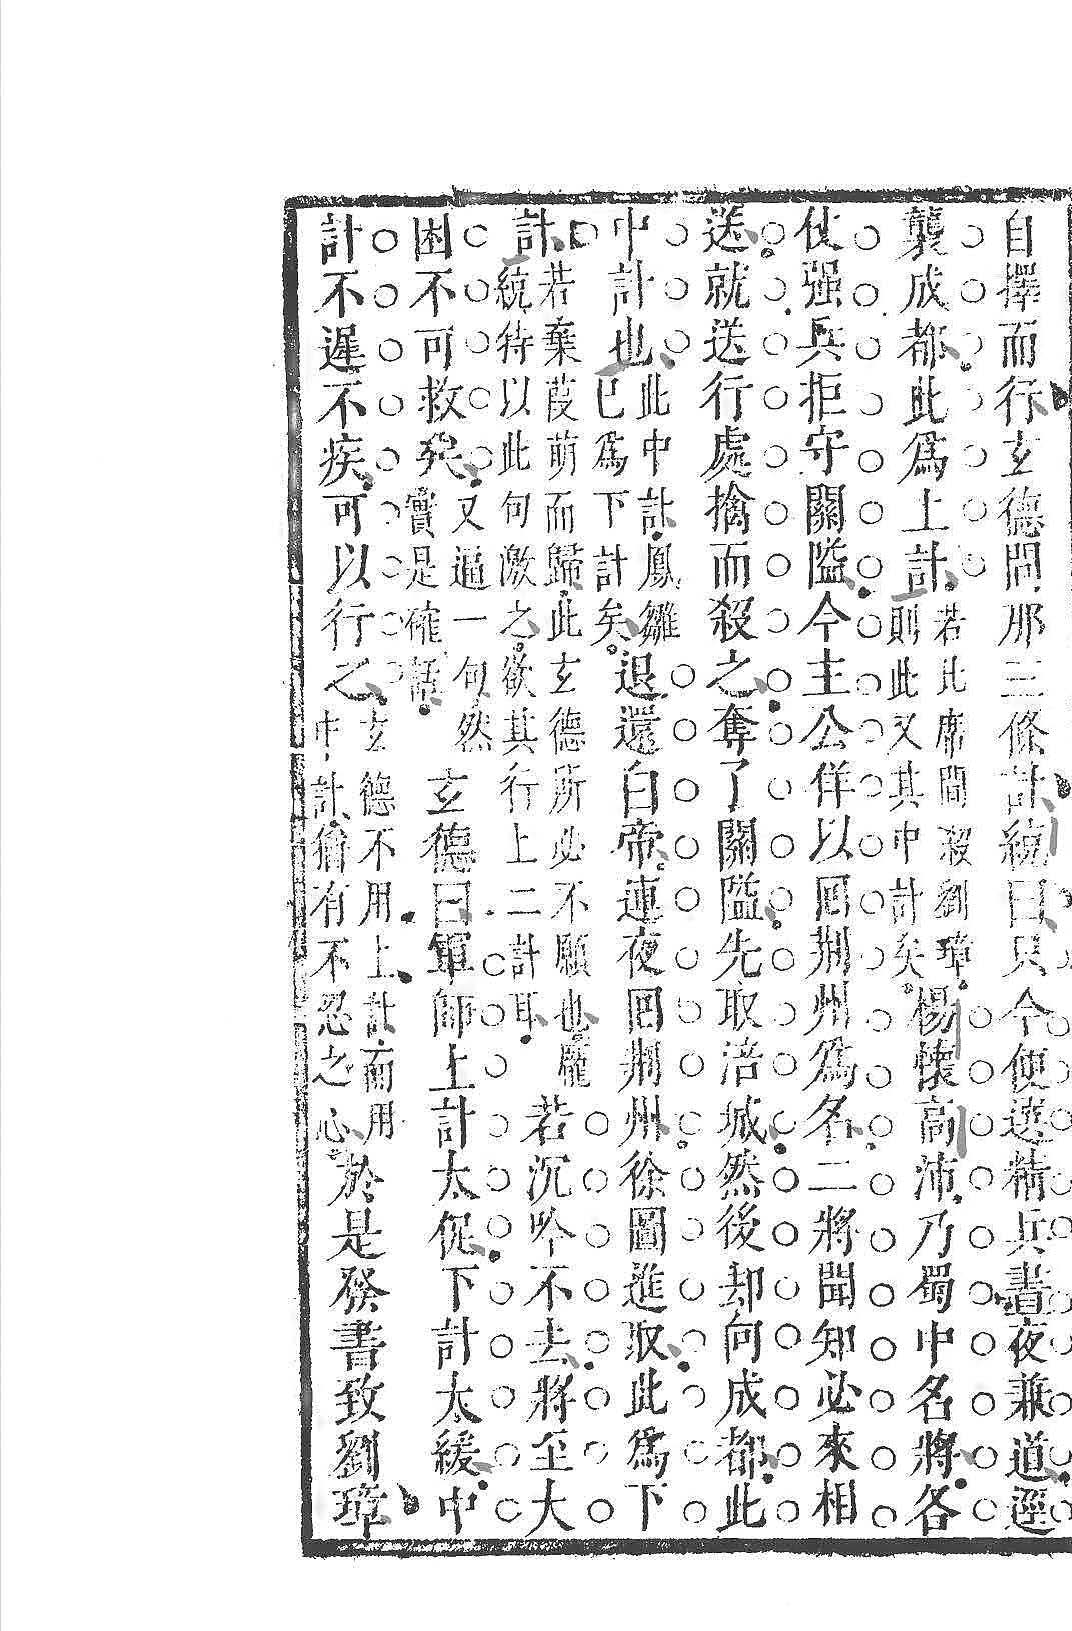 自擇而行玄德問那三條計統曰只今便選精兵晝夜兼道逕
襲成都此爲上計若此席間殺劉璋則此又其中計矣楊懷高沛乃蜀中名將各
仗强兵拒守關隘今主公佯以囘荆州爲名二將聞知必來相
送就送行處擒而殺之奪了關隘先取涪城然後却向成都此
中計也此中計鳳雛已爲下計矣退還白帝連夜囘荆州徐圖進取此爲下
計若棄葭萌而歸此玄德所必不願也龐統待以此句激之欲其行上二計耳若沉吟不去將至大
困不可救矣又逼一句然實是確話玄德曰軍師上計太促下計太緩中
計不遲不疾可以行之玄德不用上計而用中計猶有不忍之心於是發書致劉璋